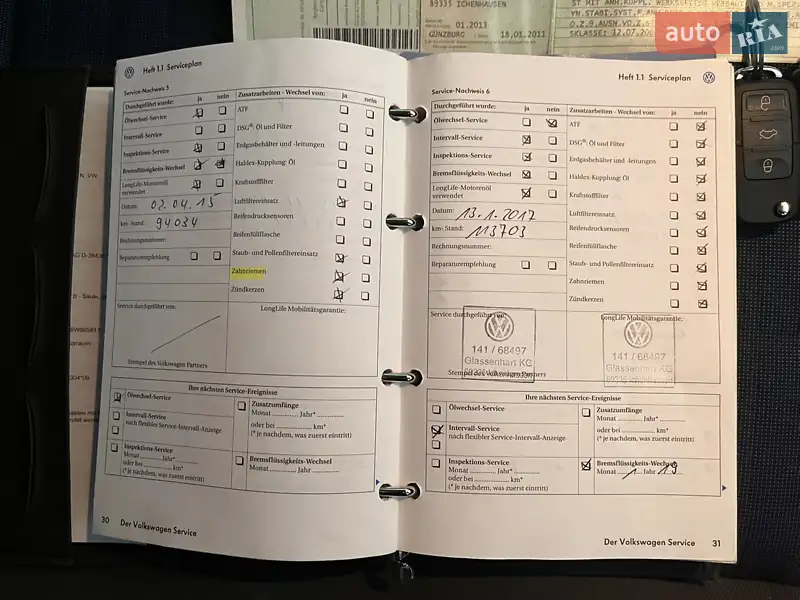 89335 ICHENHAUSEN
01.2013
GÜNZBURG 18.01.2011
auto RIA .com
Heft 1.1 Serviceplan
Service-Nachweis 5
Durchgeführt wurde: ja nein
Ölwechsel-Service
Intervall-Service
Inspektions-Service
Bremsflüssigkeits-Wechsel
LongLife-Motorenöl
verwendet
Datum: 02.04.15
km- Stand: 94034
Rechnungsnummer:
Reparaturempfehlung
Zusatzarbeiten - Wechsel von: ja nein
ATF
DSG®: Öl und Filter
Erdgasbehälter und -leitungen
Haldex-Kupplung: Öl
Kraftstofffilter
Luftfiltereinsatz
Reifendrucksensoren
Reifenfüllflasche
Staub- und Pollenfiltereinsatz
Zahnriemen
Zündkerzen
Service durchgeführt von:
LongLife Mobilitätsgarantie:
Stempel des Volkswagen Partners
Ihre nächsten Service-Ereignisse
Ölwechsel-Service
Intervall-Service
nach flexibler Service-Intervall-Anzeige
Inspektions-Service
Monat .......... Jahr* ..........
oder bei .......... km*
(* je nachdem, was zuerst eintritt)
Zusatzumfänge
Monat .......... Jahr* ..........
oder bei .......... km*
(* je nachdem, was zuerst eintritt)
Bremsflüssigkeits-Wechsel
Monat .......... Jahr ..........
30 Der Volkswagen Service
Heft 1.1 Serviceplan
Service-Nachweis 6
Durchgeführt wurde: ja nein
Ölwechsel-Service
Intervall-Service
Inspektions-Service
Bremsflüssigkeits-Wechsel
LongLife-Motorenöl
verwendet
Datum: 13.1.2017
km- Stand: 113703
Rechnungsnummer:
Reparaturempfehlung
Zusatzarbeiten - Wechsel von: ja nein
ATF
DSG®: Öl und Filter
Erdgasbehälter und -leitungen
Haldex-Kupplung: Öl
Kraftstofffilter
Luftfiltereinsatz
Reifendrucksensoren
Reifenfüllflasche
Staub- und Pollenfiltereinsatz
Zahnriemen
Zündkerzen
Service durchgeführt von:
LongLife Mobilitätsgarantie:
141 / 68497
Glassenhart KG
141 / 68497
Glassenhart KG
Stempel des Volkswagen Partners
Ihre nächsten Service-Ereignisse
Ölwechsel-Service
Intervall-Service
nach flexibler Service-Intervall-Anzeige
Inspektions-Service
Monat .......... Jahr* ..........
oder bei .......... km*
(* je nachdem, was zuerst eintritt)
Zusatzumfänge
Monat .......... Jahr* ..........
oder bei .......... km*
(* je nachdem, was zuerst eintritt)
Bremsflüssigkeits-Wechsel
Monat 1 Jahr 19
Der Volkswagen Service 31